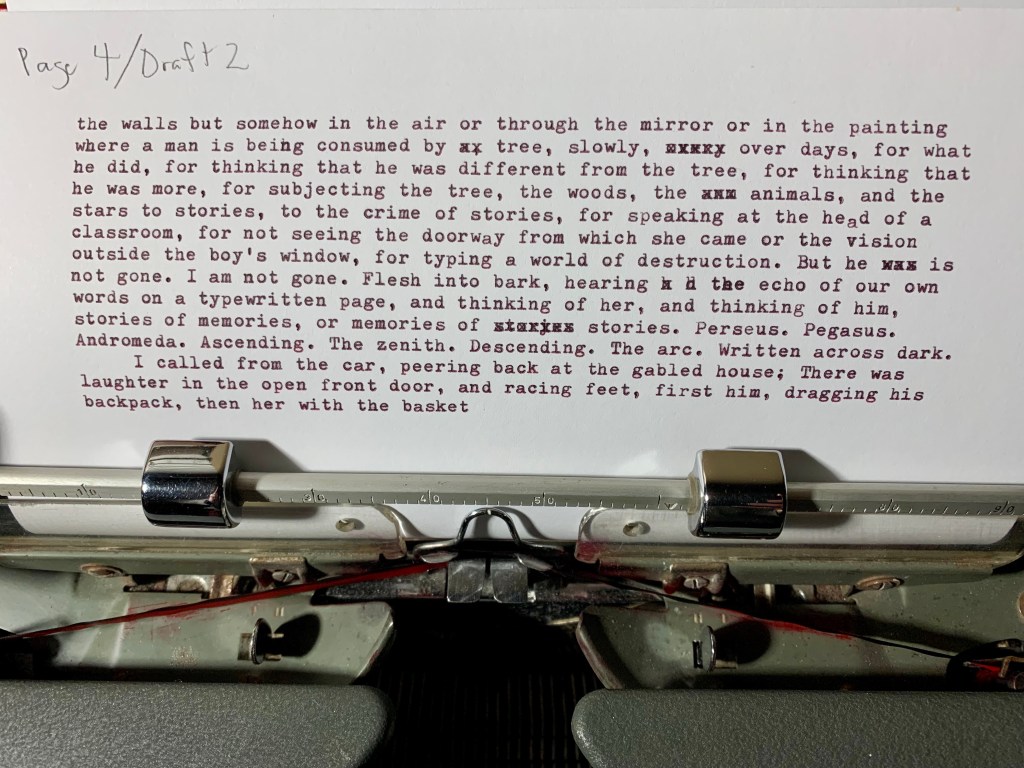 Page 4/Draft 2
the walls but somehow in the air or through the mirror or in the painting
where a man is being consumed by tree, slowly, over days, for what
he did, for thinking that he was different from the tree, for thinking that
he was more, for subjecting the tree, the woods, the animals, and the
stars to stories, to the crime of stories, for speaking at the head of a
classroom, for not seeing the doorway from which she came or the vision
outside the boy's window, for typing a world of destruction. But he is
not gone. I am not gone. Flesh into bark, hearing the echo of our own
words on a typewritten page, and thinking of her, and thinking of him,
stories of memories, or memories of stories. Perseus. Pegasus.
Andromeda. Ascending. The zenith. Descending. The arc. Written across dark.
I called from the car, peering back at the gabled house; There was
laughter in the open front door, and racing feet, first him, dragging his
backpack, then her with the basket
40 50